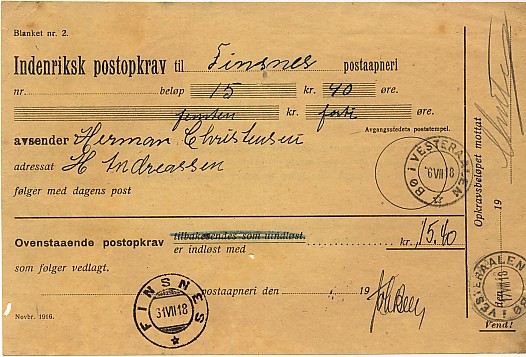 Blanket nr. 2.
Indenriksk postopkrav til Finsnes postaapneri
nr. beløp 15 kr. 40 øre.
femten kr. forti øre.
avsender Herman Christensen
Avgangsstedets poststempel.
adressat H Andreassen
følger med dagens post
BØ I VESTERAALEN
6 VII 18
Ovenstaaende postopkrav tilbakesendes som uindløst
er indløst med kr. 15.40
som følger vedlagt.
FINSNES
31 VII 18
postaapneri den 19
Novbr. 1916.
Opkravsbeløpet mottat
den 19
BØ I VESTERAALEN
VII 18
Vend!